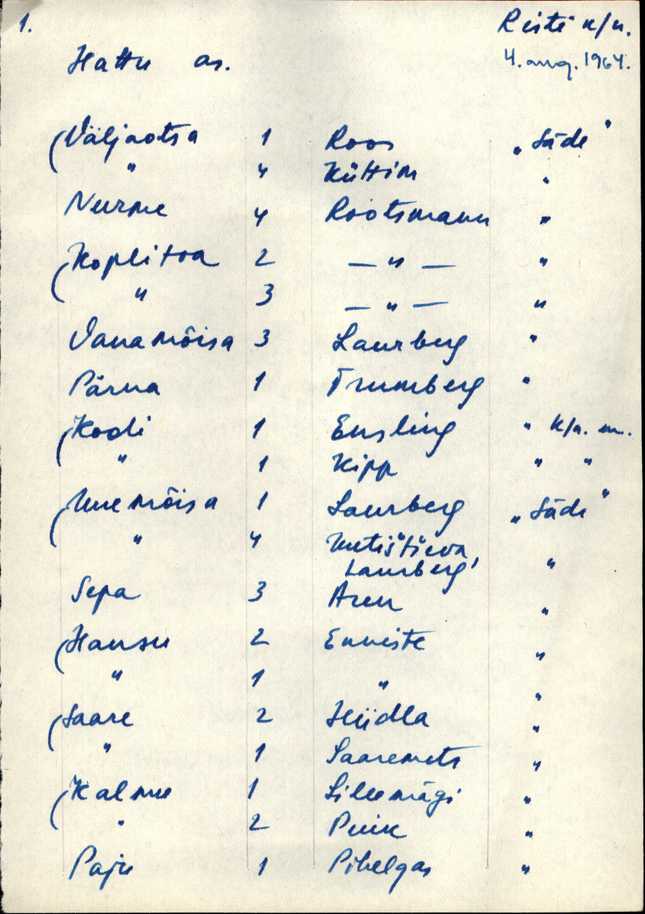 1. Risti k/n.
Hattu as. 4. aug. 1964.
Väljaotsa 1 Roos „Säde"
" 4 Küttim "
Nurme 4 Rootsmann "
Koplitoa 2 — " — "
" 3 — " — "
Vanamõisa 3 Laurberg "
Pärna 1 Trumberg "
Kodi 1 Ensling " k/n. m.
" 1 Kipp " "
Uuemõisa 1 Laurberg „Säde"
" 4 Kutištševa,
Laurberg "
Sepa 3 Aren "
Hansu 2 Enniste "
" 1 " "
Saare 2 Hiidla "
" 1 Saaremets "
Kalmu 1 Lillemägi "
" 2 Puik "
Paju 1 Pihelgas "